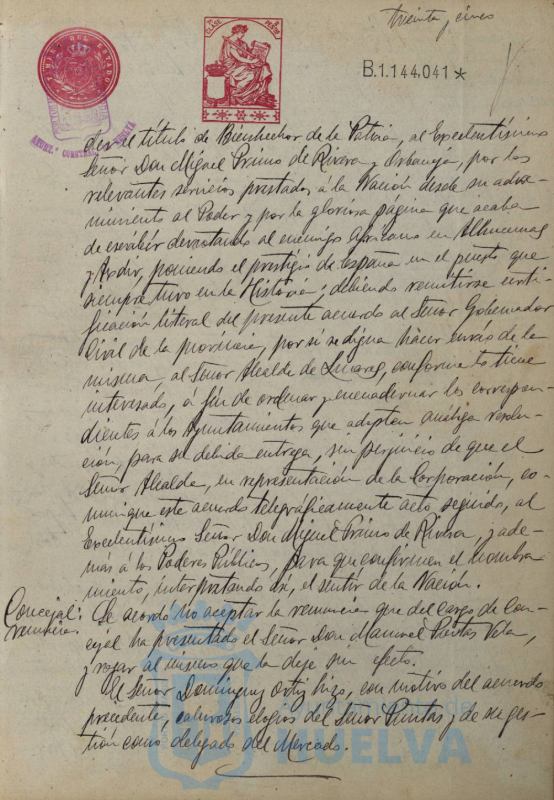 treinta y cinco
1ª CLASE PESETAS
B.1.144.041*
TIMBRE DEL ESTADO
der el título de Bienhechor de la Patria, al Excelentísimo
Señor Don Miguel Primo de Rivera y Orbaneja, por los
relevantes servicios prestados á la Nación desde su adve-
nimiento al Poder y por la gloriosa página que acaba
de escribir derrotando al enemigo africano en Alhucemas
y Axdir, poniendo el prestigio de España en el puesto que
siempre tuvo en la Historia; debiendo remitirse certi-
ficación literal del presente acuerdo al Señor Gobernador
Civil de la provincia, por si se digna hacer envío de la
misma, al Señor Alcalde de Linares, conforme lo tiene
interesado, á fin de ordenar y encuadernar las correspon-
dientes á los Ayuntamientos que adopten análoga resolu-
ción, para su debida entrega, sin perjuicio de que el
Señor Alcalde, en representación de la Corporación, co-
munique este acuerdo telegráficamente acto seguido, al
Excelentísimo Señor Don Miguel Primo de Rivera, y ade-
más á los Poderes Públicos, para que confirmen el nombra-
miento, interpretando así, el sentir de la Nación.
Concejal: renuncia.
Se acordó no aceptar la renuncia que del cargo de Con-
cejal ha presentado el Señor Don Manuel Puntas Vela,
y rogar al mismo que la deje sin efecto.
El Señor Dominguez Ortiz hizo, con motivo del acuerdo
precedente, calurosos elogios del Señor Puntas y de su ges-
tión como delegado del Mercado.
Ayuntamiento de
HUELVA